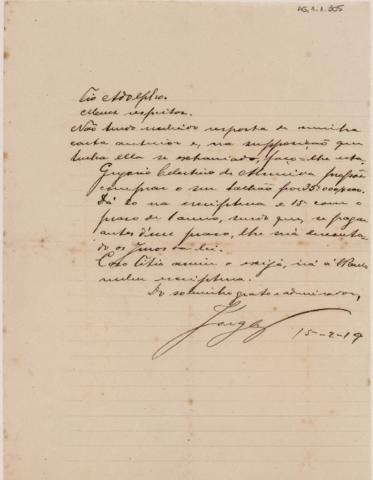 AG.1.1.305
Tio Adolpho.
Meus respeitos.
Não tendo recebido resposta de minha
carta anterior e, na supposição que
tenha ella se extraviado, faço-lhe esta.
Gregorio Celestino de Almeida
comprar o seu talhão por 35:000$000.
Dá 20 na escriptura e 15 com o
praso de 1 anno, sendo que, se pagar
antes d'esse praso, lhe será desconta-
do os juros da lei.
Caso Titio annue o exijá, irá á
escriptura.
Do sobrinho grato e admirador,
Jorge
15-2-19